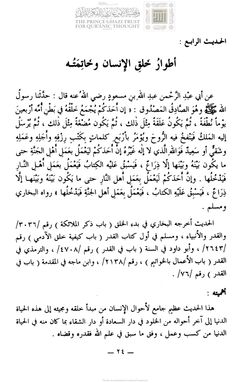 THE PRINCE GHAZI TRUST
FOR QUR'ANIC THOUGHT
الحديث الرابع :
أطوارُ خلقِ الإنسان وخاتِمتُه
عن أبي عبْدِ الرَّحمنِ عبدِ الله بنِ مسعودٍ رضي الله عنه قال : حدَّثنا رسولُ
الله ﷺ وهوَ الصَّادِقُ المَصْدُوقُ : « إن أحدَكُمْ يُجْمَعُ خَلْقُهُ في بَطْنِ أُمِّهِ أربعينَ
يوماً نُطْفَةً ، ثُمَّ يَكُونُ عَلَقَةً مِثْلَ ذلك ، ثُمَّ يكُونُ مُضْغَةً مِثْلَ ذلك ، ثُمَّ يُرْسَلُ
إليه المَلَكُ فَيَنْفُخُ فيه الرُّوحَ ويُؤمَرُ بأربَعِ كلماتٍ بِكَتْبِ رِزْقِهِ وأجَلِهِ وعَمَلِهِ
وشَقِيٌّ أو سعيدٌ فَوَالله الَّذي لا إلهَ غَيْرُهُ إنَّ أحَدَكُمْ لَيَعْمَلُ بعملِ أهْلِ الجنَّةِ حتى
ما يكونَ بَيْنَهُ وبَيْنَها إلَّا ذِرَاعٌ ، فيَسبِقُ علَيْهِ الكتابُ، فيَعْمَلُ بعملِ أهْلِ النَّارِ
فيَدْخُلُها . وإنَّ أحَدَكُمْ لَيَعْمَلُ بعملِ أهل النارِ حتى ما يكون بَيْنَهُ وبَيْنَها إلَّا
ذِرَاعٌ ، فيَسْبِقُ علَيْهِ الكِتَابُ ، فَيَعْمَلُ بِعَمَلِ أهل الجنَّةِ فَيَدْخُلُها » رواه البخاري
ومسلم .
الحديث أخرجه البخاري في بدء الخلق ( باب ذكر الملائكة ) رقم /٣٠٣٦/
والقدر والأنبياء ، ومسلم في أول كتاب القدر ( باب كيفية خلق الآدمي ) رقم
/٢٦٤٣/ ، وأبو داود في السنة ( باب في القدر ) رقم /٤٧٠٨/ ، والترمذي في
القدر ( باب الأعمال بالخواتيم ) ، رقم /٢١٣٨/ وابن ماجه في المقدمة ( باب في
القدر ) رقم /٧٦/ .
أهميته :
هذا الحديث عظيم جامع لأحوال الإنسان من مبدأ خلقه ومجيئه إلى هذه الحياة
الدنيا إلى آخر أحواله من الخلود في دار السعادة أو دار الشقاء بما كان منه في الحياة
الدنيا من كسب وعمل ، وفق ما سبق في علم الله فقدره وقضاه .
– ٢٤ –